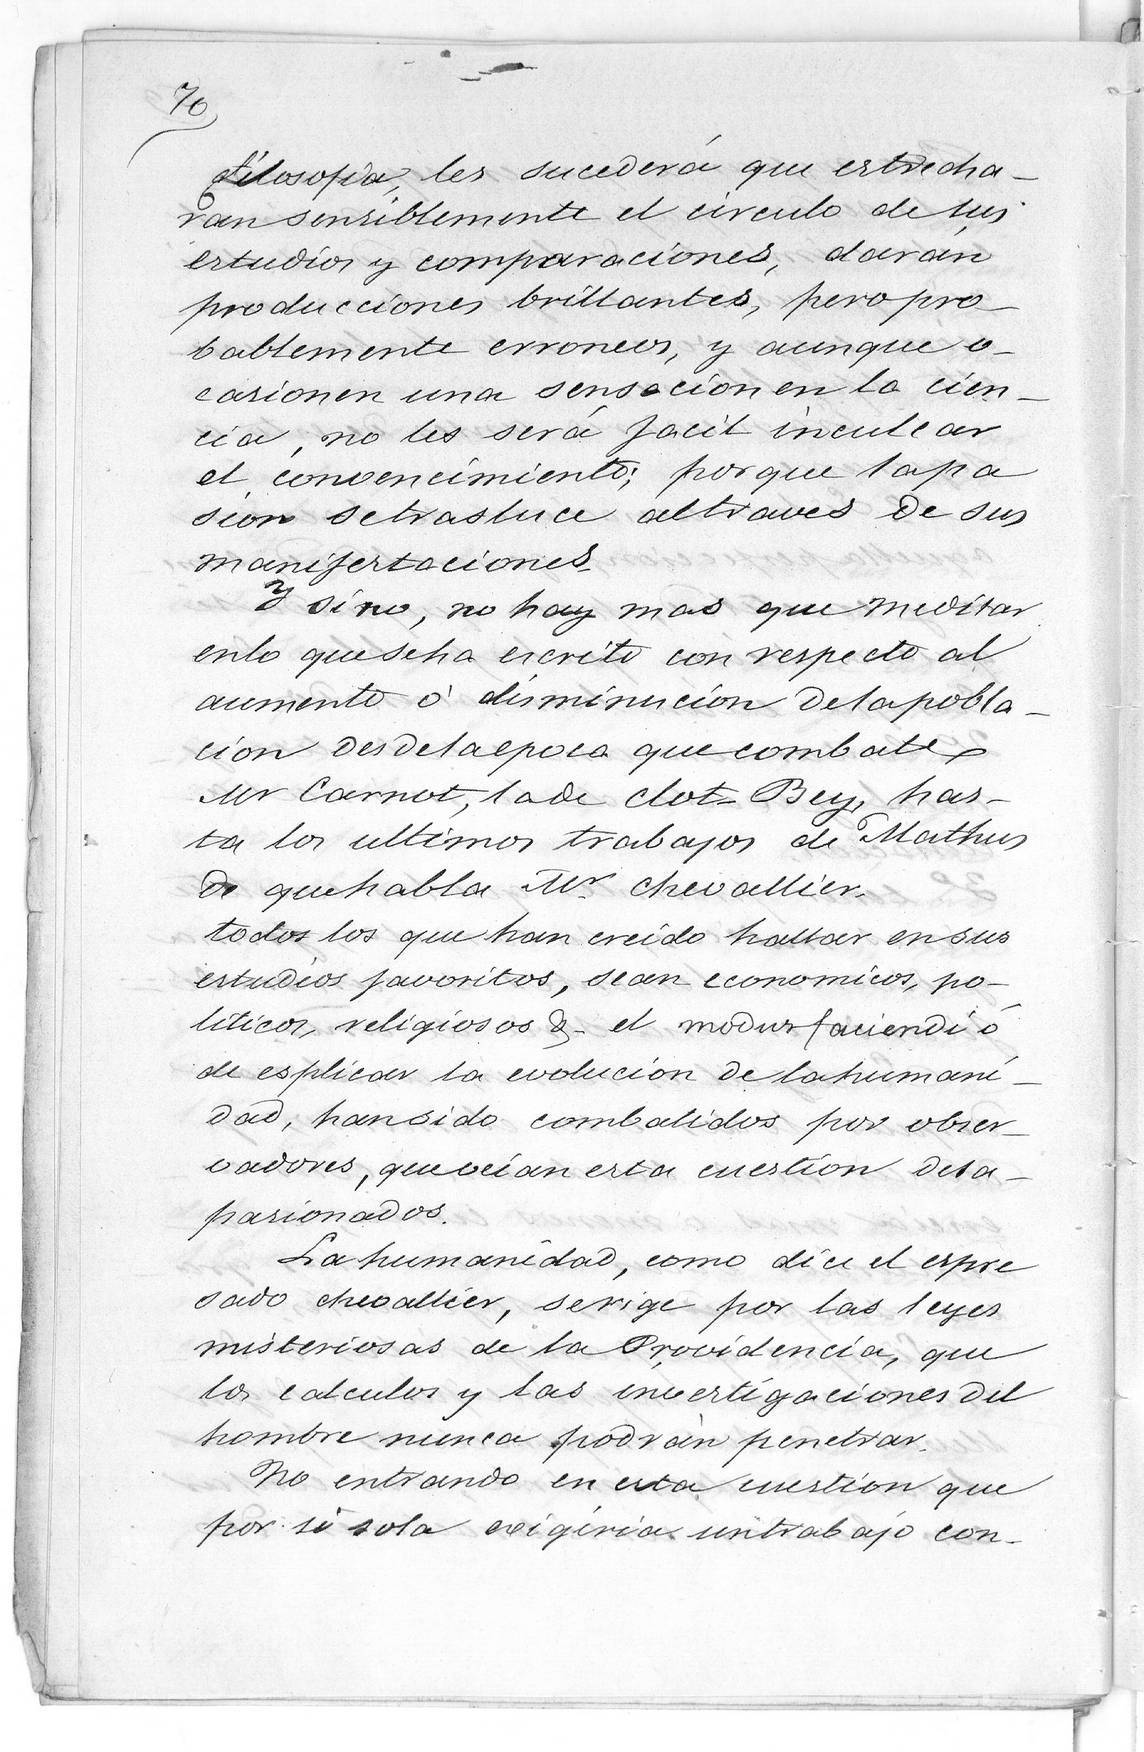 70
Filosofia, les sucederá que estrecha-
ran sensiblemente el circulo de sus
estudios y comparaciones, darán
producciones brillantes, pero pro-
bablemente erroneos, y aunque o-
casionen una sensacion en la cien-
cia, no les será facil inculcar
el convencimiento; porque la pa
sion se trasluce al traves de sus
manifestaciones.
Y sino, no hay mas que meditar
en lo que se ha escrito con respecto al
aumento ó disminucion de la pobla-
cion desde la epoca que combate
Mr Carnot, la de Clot-Bey, has-
ta los ultimos trabajos de Mathus
de que habla Mr. Chevallier.
todos los que han creido hallar en sus
estudios favoritos, sean economicos, po-
liticos, religiosos &. el modus faciendi ó
de esplicar la evolucion de la humani-
dad, han sido combatidos por obser-
vadores, que veian esta cuestion desa-
pasionados.
La humanidad, como dice el espre
sado Chevallier, se rige por las leyes
misteriosas de la Providencia, que
los calculos y las investigaciones del
hombre nunca podrán penetrar.
No entrando en esta cuestion que
por si sola exigiria un trabajo con-